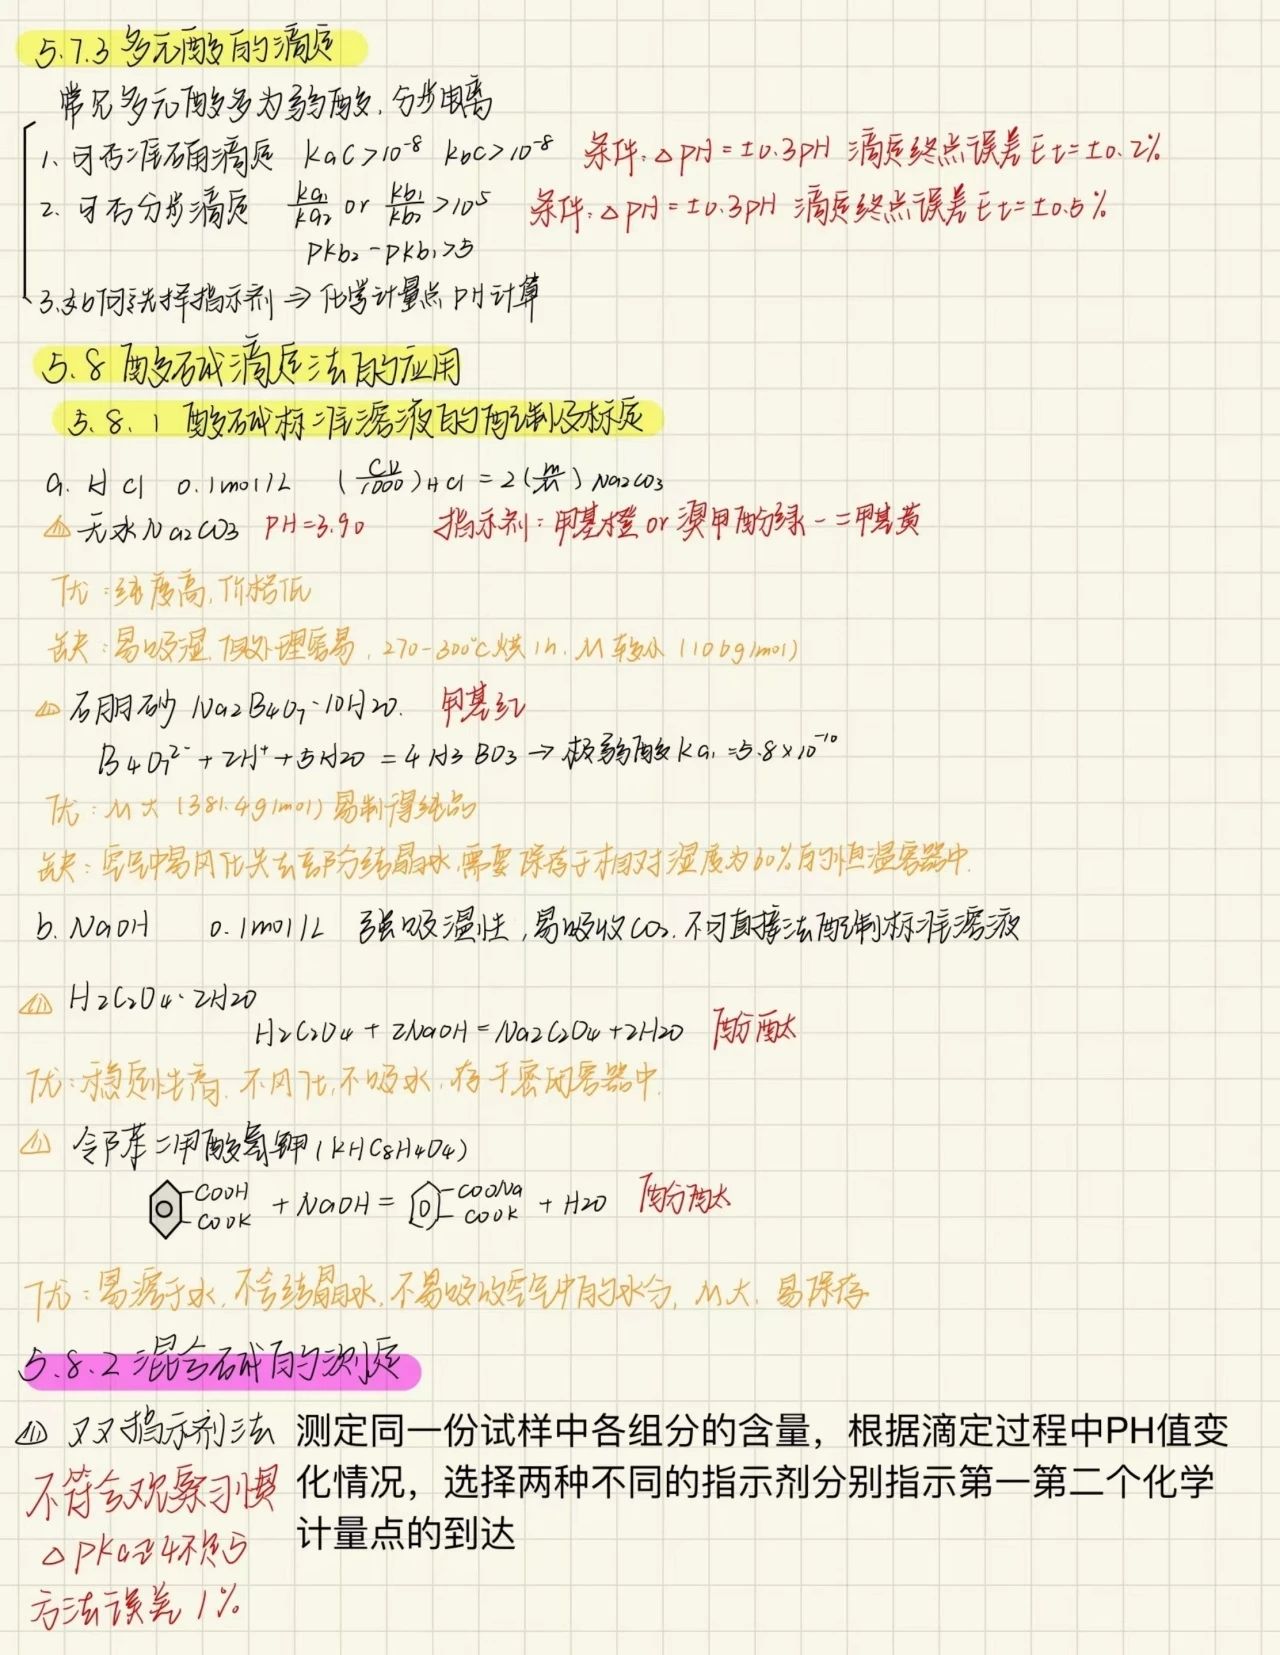 5.7.3 多元酸的滴定
常见多元酸多为弱酸,分步电离
1、可否准确滴定 KaC>10⁻⁸ KbC>10⁻⁸ 条件:△PH=±0.3PH 滴定终点误差Et=±0.2%
2、可否分步滴定 Ka₁/Ka₂ or Kb₁/Kb₂ >10⁵ 条件:△PH=±0.3PH 滴定终点误差Et=±0.5%
PKb₂-PKb₁>5
3.如何选择指示剂⇒化学计量点PH计算
5.8 酸碱滴定法的应用
5.8.1 酸碱标准溶液的配制及标定
a. HCl 0.1mol/L (CV/1000)HCl=2(m/M)Na2CO3
⑴ 无水Na2CO3 PH=3.90 指示剂:甲基橙or溴甲酚绿-二甲基黄
优:纯度高,价格低
缺:易吸湿,但处理容易,270-300℃烘1h,M较小(106g/mol)
⑵ 硼砂 Na2B4O7·10H2O. 甲基红
B4O7²⁻+2H⁺+5H2O=4H3BO3→极弱酸Ka₁=5.8×10⁻¹⁰
优:M大(381.4g/mol)易制得纯品
缺:空气中易风化失去部分结晶水,需要保存于相对湿度为60%的恒湿容器中.
b. NaOH 0.1mol/L 强吸湿性,易吸收CO2.不可直接法配制标准溶液
⑴ H2C2O4·2H2O
H2C2O4+2NaOH=Na2C2O4+2H2O 酚酞
优:稳定性高,不风化,不吸水,存于密闭容器中.
⑵ 邻苯二甲酸氢钾(KHC8H4O4)
COOH COOK +NaOH= COONa COOK +H2O 酚酞
优:易溶于水,不含结晶水,不易吸收空气中的水分,M大,易保存
5.8.2 混合碱的测定
⑴ 双指示剂法 测定同一份试样中各组分的含量,根据滴定过程中PH值变
不符合观察习惯 化情况,选择两种不同的指示剂分别指示第一第二个化学
计量点的到达
△PKa≈4不够5
方法误差1%